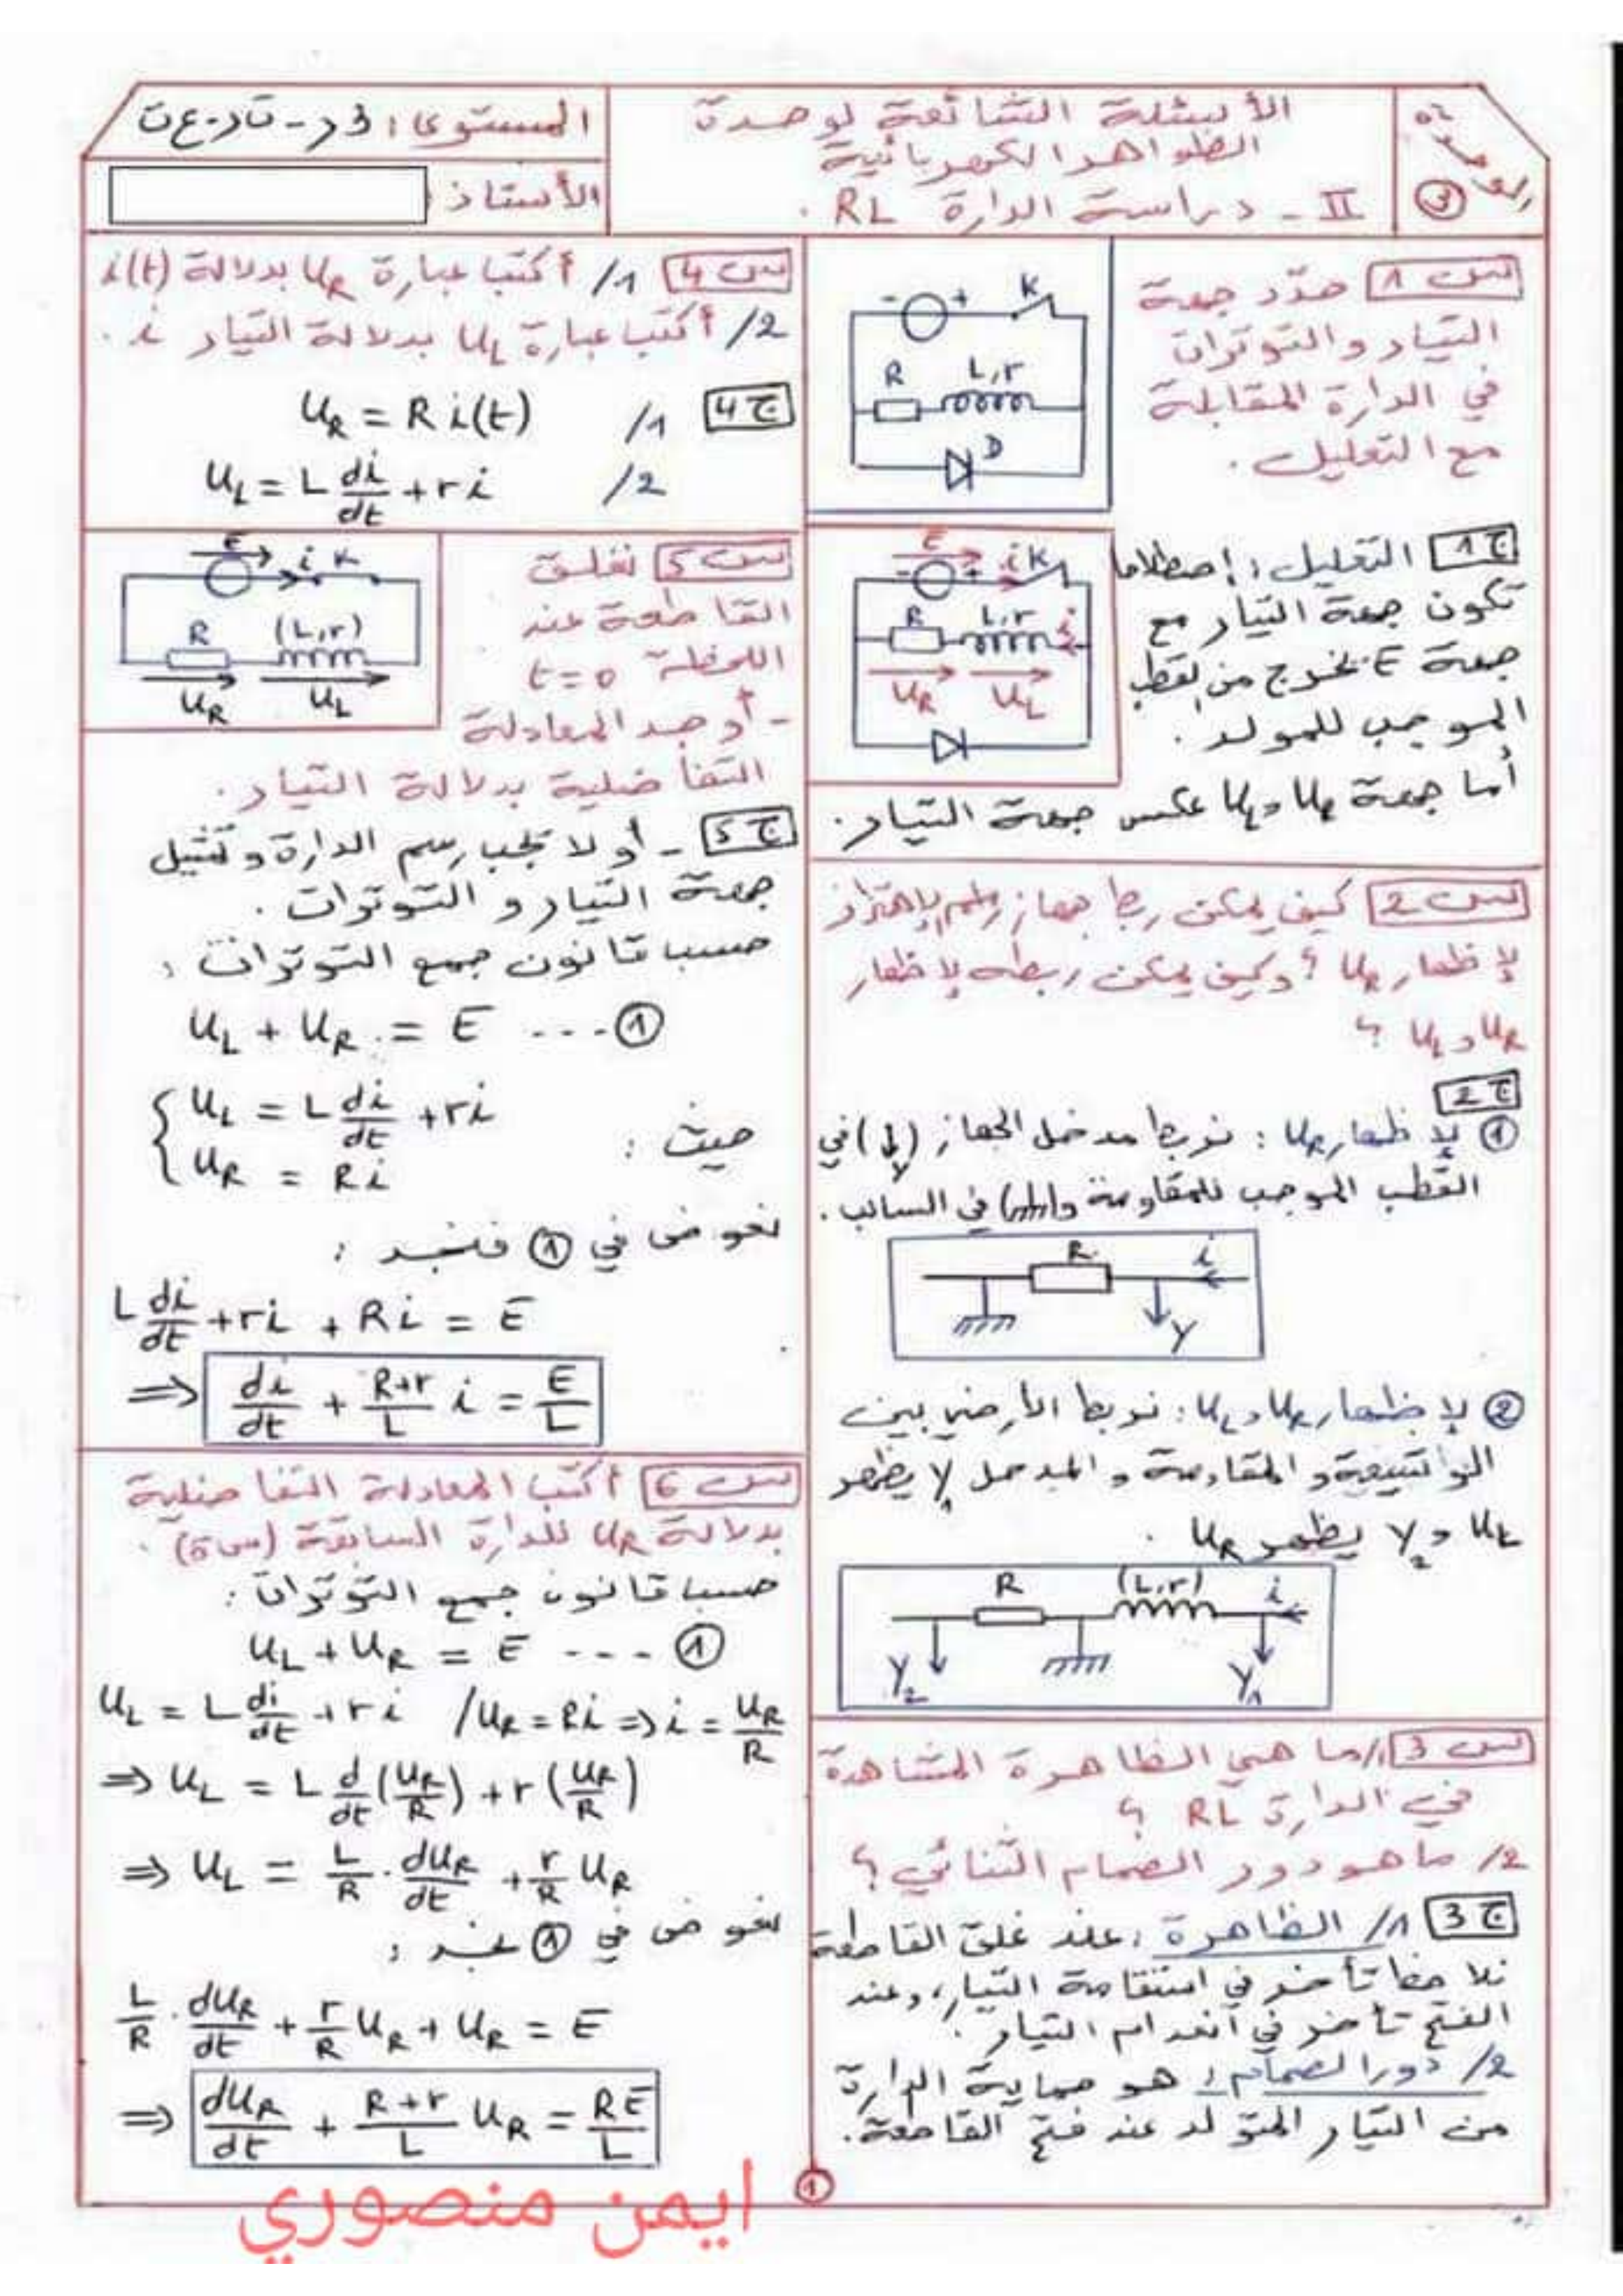 الوحدة
3
الأسئلة الشائعة لوحدة
الظواهر الكهربائية
II - دراسة الدارة RL .
المستوى: 3 ر - تر - ع ت
الأستاذ:
س 1 حدّد جهة
التيار والتوترات
في الدارة المقابلة
مع التعليل .
- + K
R L,r
D
ج 1 التعليل: إصطلاحا
تكون جهة التيار مع
جهة E تخرج من القطب
الموجب للمولد .
أما جهة U_R و U_L عكس جهة التيار .
E i K
- +
R L,r i
U_R U_L
س 2 كيف يمكن ربط جهاز راسم الإهتزاز
لإظهار U_R ؟ وكيف يمكن ربطه لإظهار
U_R و U_L ؟
ج 2
① لإظهار U_R : نربط مدخل الجهاز (Y) في
القطب الموجب للمقاومة و في السالب .
R i
Y
② لإظهار U_R و U_L : نربط الأرضي بين
الوشيعة و المقاومة و المدخل Y₁ يظهر
U_L و Y₂ يظهر U_R .
R (L,r) i
Y₂ Y₁
س 3 1/ ما هي الظاهرة المشاهدة
في الدارة RL ؟
2/ ما هو دور الصمام الثنائي ؟
ج 3 1/ الظاهرة : عند غلق القاطعة
نلاحظ تأخر في استقامة التيار ، وعند
الفتح تأخر في انعدام التيار .
2/ دور الصمام : هو حماية الدارة
من التيار المتولد عند فتح القاطعة .
س 4 1/ أكتب عبارة U_R بدلالة i(t)
2/ أكتب عبارة U_L بدلالة التيار i .
ج 4 1/ U_R = R i(t)
2/ U_L = L di/dt + r i
س 5 نغلق
القاطعة عند
اللحظة t = 0
- أوجد المعادلة
التفاضلية بدلالة التيار .
E i K
R (L,r)
U_R U_L
ج 5 - أولا يجب رسم الدارة و تمثيل
جهة التيار و التوترات .
حسب قانون جمع التوترات :
U_L + U_R = E ---- ①
حيث : { U_L = L di/dt + ri
U_R = Ri
نعوض في ① فنجد :
L di/dt + ri + Ri = E
⇒ di/dt + (R+r)/L i = E/L
س 6 أكتب المعادلة التفاضلية
بدلالة U_R للدارة السابقة (س 5) .
حسب قانون جمع التوترات :
U_L + U_R = E ---- ①
U_L = L di/dt + r i / U_R = Ri ⇒ i = U_R/R
⇒ U_L = L d/dt (U_R/R) + r (U_R/R)
⇒ U_L = L/R . dU_R/dt + r/R U_R
نعوض في ① نجد :
L/R . dU_R/dt + r/R U_R + U_R = E
⇒ dU_R/dt + (R+r)/L U_R = RE/L
1
ايمن منصوري